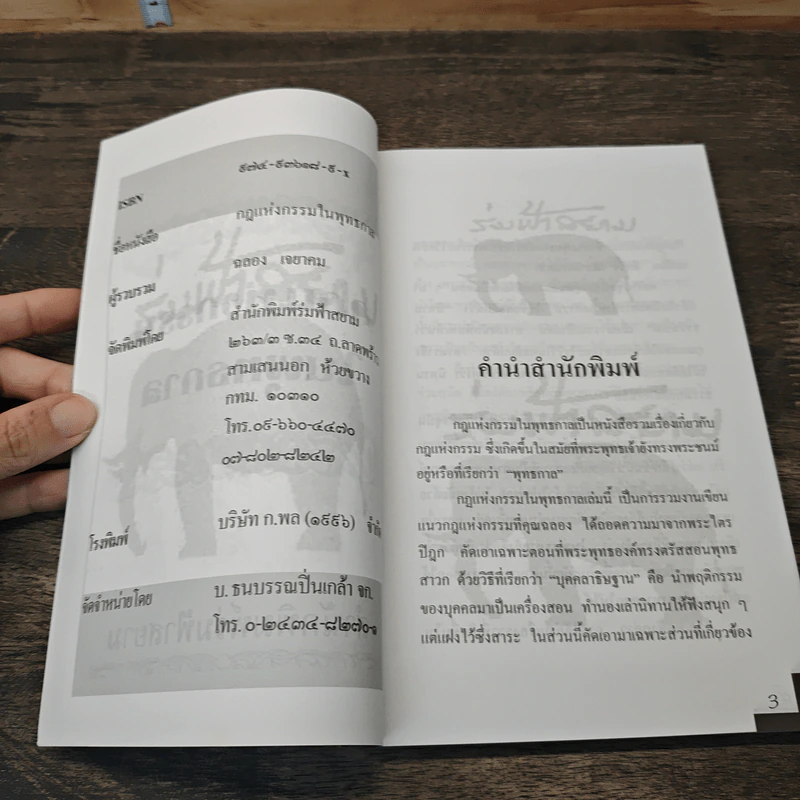 ISBN ๙๗๔-๙๓๖๑๘-๕-x
ชื่อหนังสือ กฎแห่งกรรมในพุทธกาล
ผู้รวบรวม ฉลอง เจยาคม
จัดพิมพ์โดย สำนักพิมพ์ร่มฟ้าสยาม
๒๖๓/๓ ซ.๓๔ ถ.ลาดพร้าว
สามเสนนอก ห้วยขวาง
กทม. ๑๐๓๑๐
โทร.๐๙-๖๖๐-๔๔๗๐
๐๗-๘๐๒-๘๒๔๒
โรงพิมพ์ บริษัท ก.พล (๑๙๙๖)
จัดจำหน่ายโดย บ. ธนบรรณปิ่นเกล้า จก.
โทร. ๐-๒๔๓๔-๘๒๗๐-๑
ร่มฟ้าสยาม
คำนำสำนักพิมพ์
กฎแห่งกรรมในพุทธกาลเป็นหนังสือรวมเรื่องเกี่ยวกับ
กฎแห่งกรรม ซึ่งเกิดขึ้นในสมัยที่พระพุทธเจ้ายังทรงพระชนม์
อยู่หรือที่เรียกว่า "พุทธกาล"
กฎแห่งกรรมในพุทธกาลเล่มนี้ เป็นการรวมงานเขียน
แนวกฎแห่งกรรมที่คุณฉลอง ได้ถอดความมาจากพระไตร
ปิฎก คัดเอาเฉพาะตอนที่พระพุทธองค์ทรงตรัสสอนพุทธ
สาวก ด้วยวิธีที่เรียกว่า "บุคคลาธิษฐาน" คือ นำพฤติกรรม
ของบุคคลมาเป็นเครื่องสอน ทำนองเล่านิทานให้ฟังสนุก ๆ
แต่แฝงไว้ซึ่งสาระ ในส่วนนี้คัดเอามาเฉพาะส่วนที่เกี่ยวข้อง
3